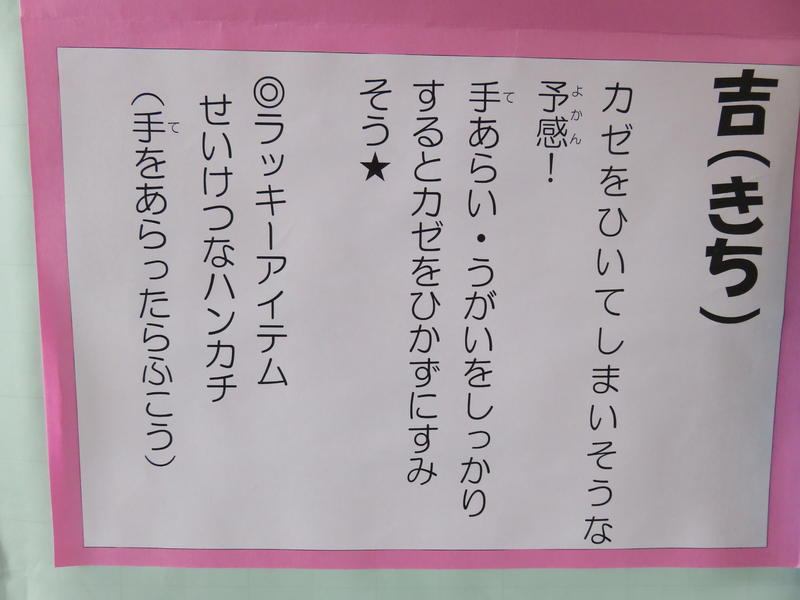 吉(きち)
カゼをひいてしまいそうな
予感!
よかん
手あらい・うがいをしっかり
て
するとカゼをひかずにすみ
そう★
◎ラッキーアイテム
せいけつなハンカチ
(手をあらったらふこう)
て